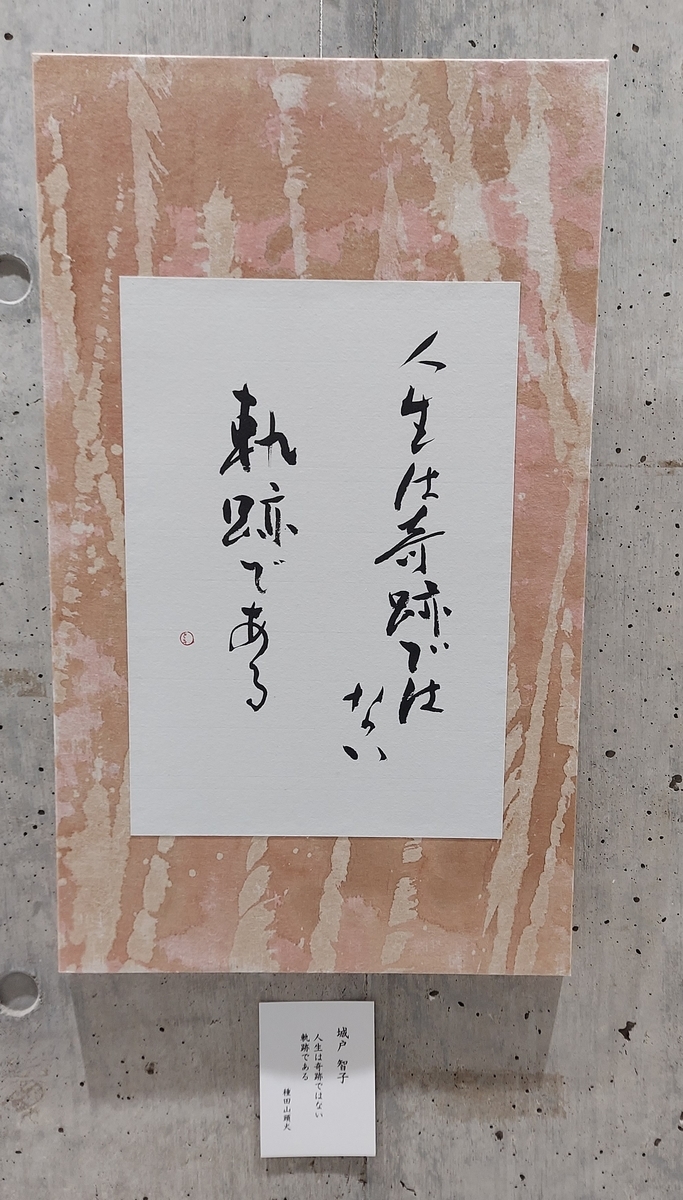 人生は奇跡では
ない
軌跡である
城戸 智子
人生は奇跡ではない
軌跡である
種田山頭火